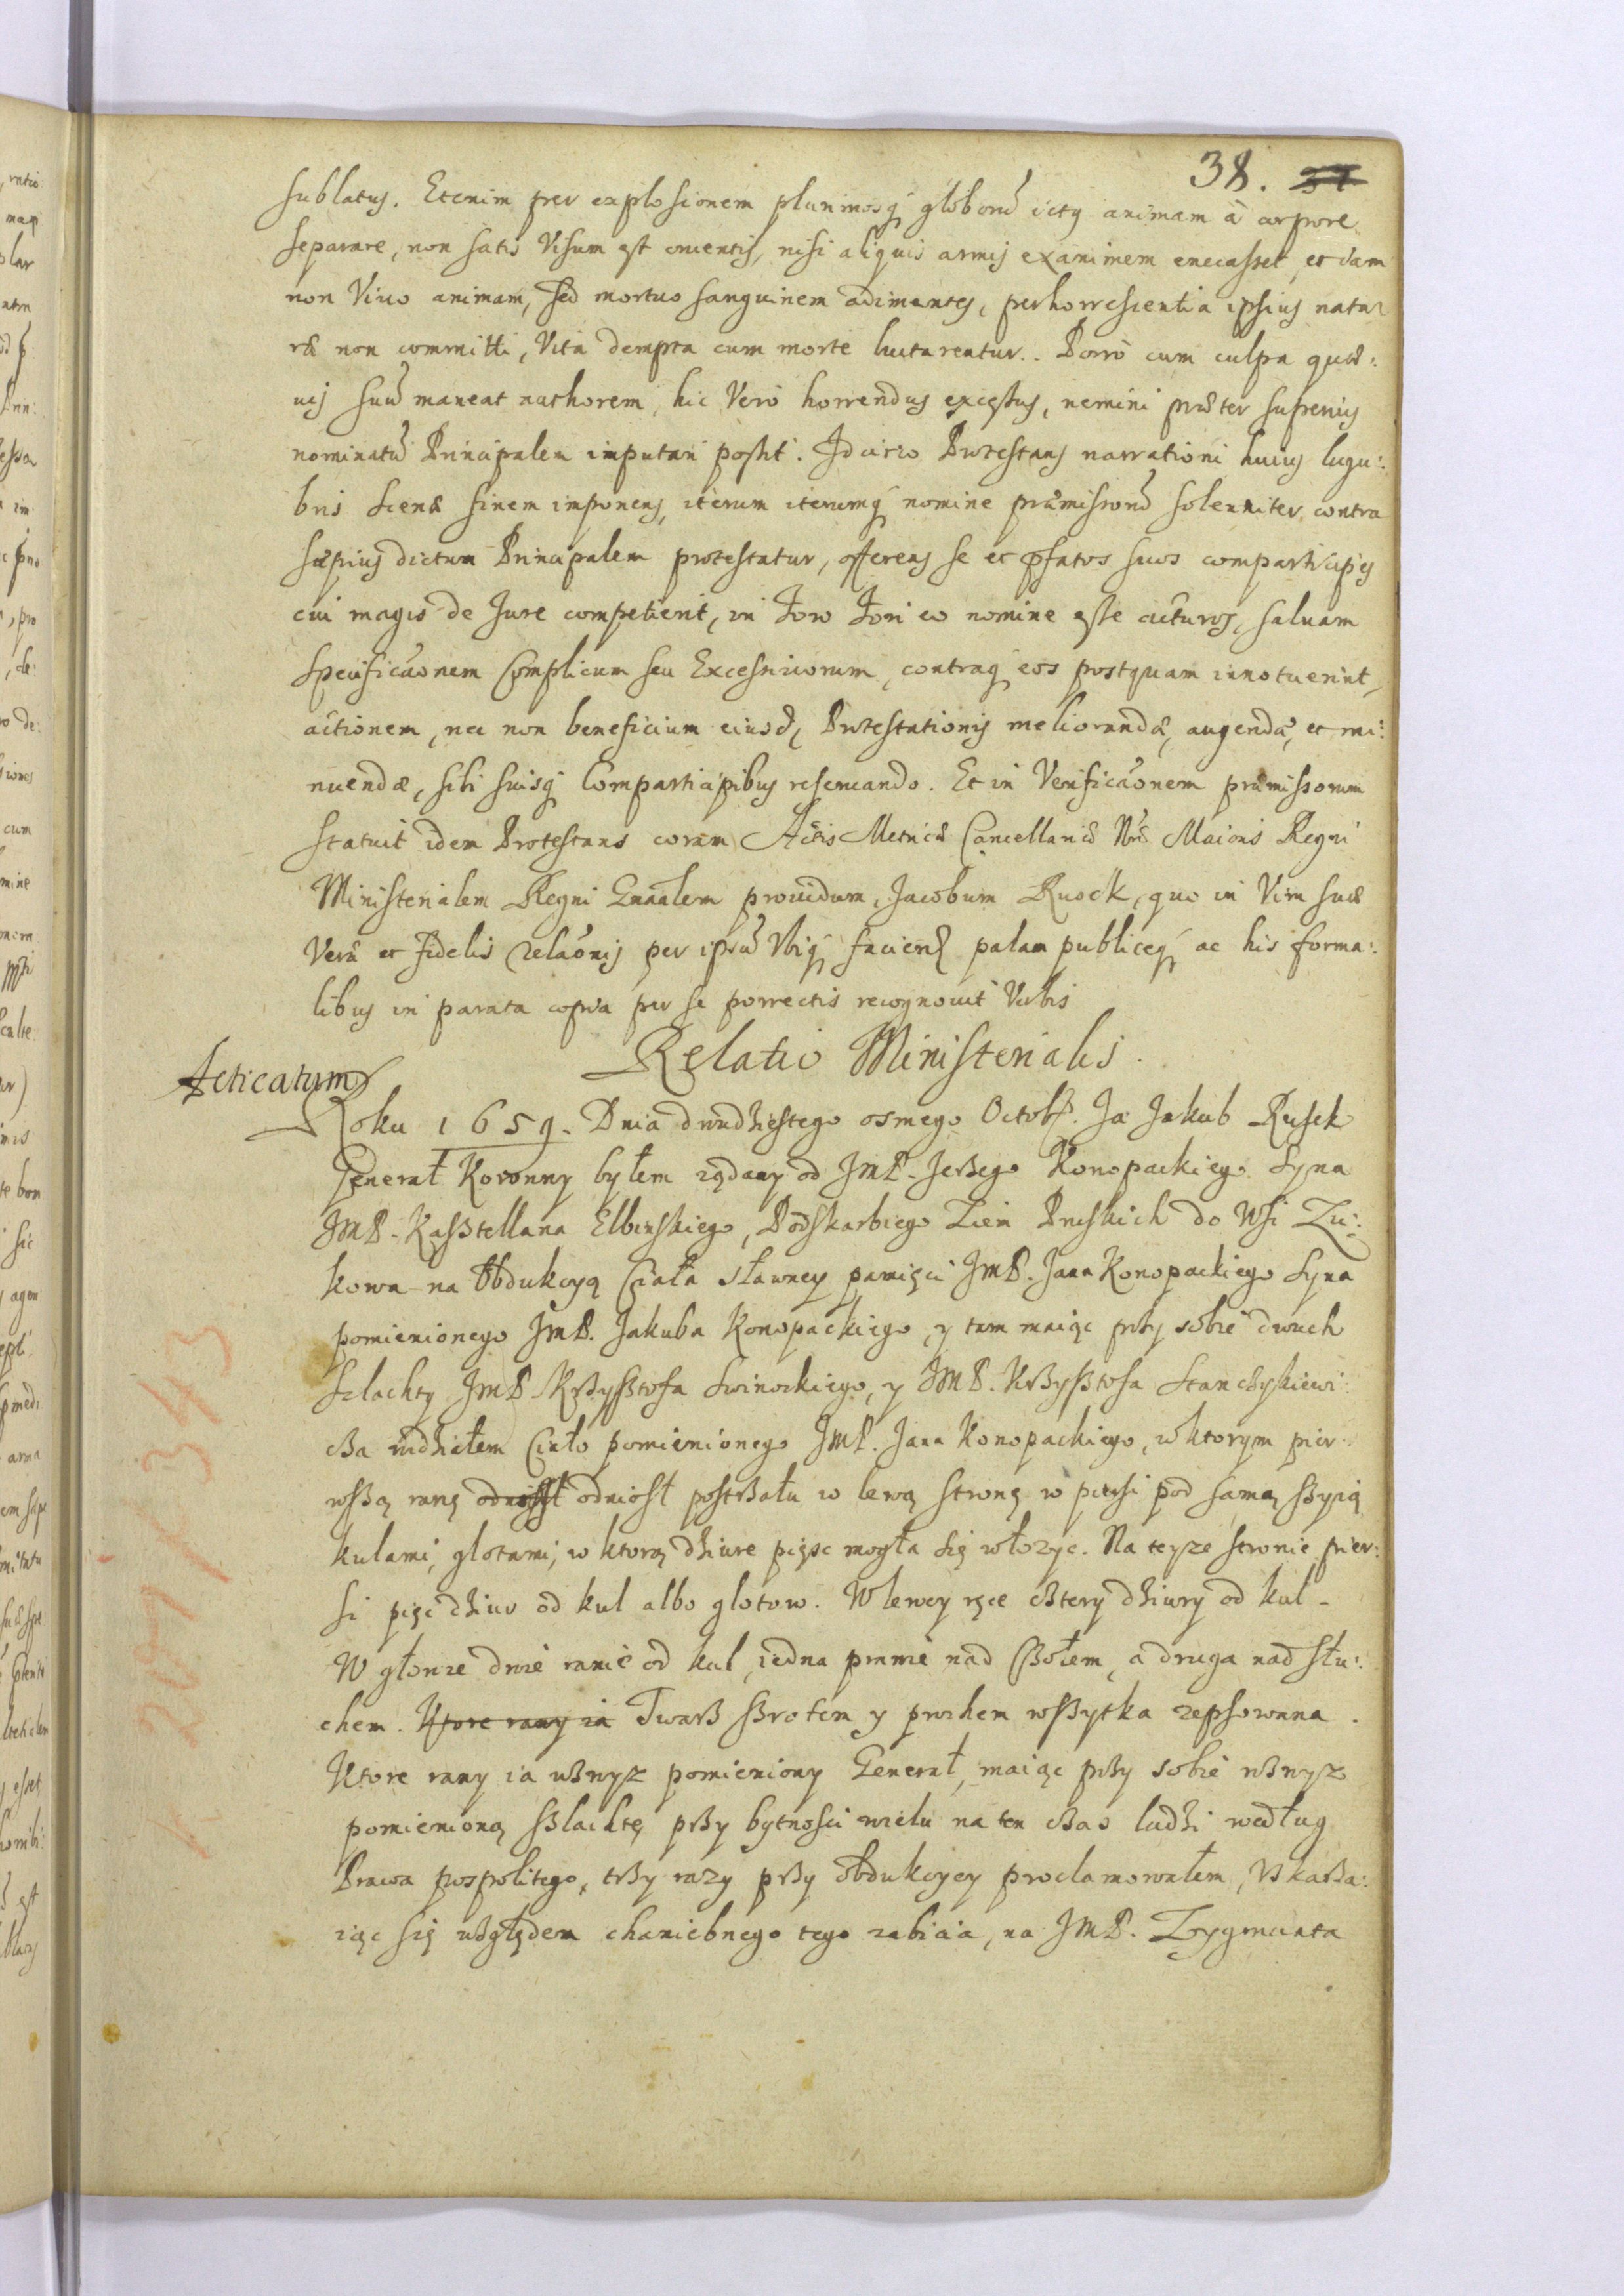 38. 37
sublatus. Etenim per explosionem plurimosq globorũ ictus animam à corpore
separare, non satis Visum est cruentis, nisi aliquis armis exanimem enecasset, et dam
non Viuo animam, sed mortuo sanguinem adimentes, perhorrescentia ipsius natu
ræ non committi, Vita dempta cum morte luctarentur. Porrò cum culpa quæ:
uis suũ maneat authorem, hic Verò horrendus excessus, nemini præter superius
nominatũ Principalem imputari possit. Idcirco Protestans narrationi huius lugu:
bris scenæ finem imponens, iterum iterumq nomine præmissorũ solenniter contra
sæpius dictum Principalem protestatur, offerens se et pfatos suos compartícipes
cui magis de Jure competierit, in Foro Fori eo nomine esse acturos, saluam
Specificãonem Complicum seu Excessiuorum, contraq eos postquam innotuerint,
actionem, nec non beneficium eiusd, Protestationis meliorandæ, augendæ, et mi:
nuendæ, sibi suisq Comparticipibus reseruando. Et in Verificãonem præmissorum
statuit idem Protestans coram Actis Metricæ Cancellariæ Nræ Maioris Regni
Ministerialem Regni Gnãlem prouidum, Jacobum Rusek, quo in Vim suæ
Veræ et fidelis relãonis per ipsũ Vbiq faciend palam publiceq ac his forma:
libus in parata copia per se porrectis recognouit Verbis
Relatio Ministerialis.
Acticatum
Roku 1659. Dnia dwudziestego osmego Octobr. Ja Jakub Rusek
Generał Koronny byłem ządany od JMP. Jerzego Konopackiego Syna
JMP. Kasztellana Elbinskiego, Podskarbiego Ziem Pruskich do Wsi Zu:
kowa na Obdukcyą Ciała sławney pamięci JMP. Jana Konopackiego Syna
pomienionego JMP. Jakuba Konopackiego, y tam maiąc przy sobie dwuch
Szlachty JMP Krzysztofa Swinockiego, y JMP. Krzysztofa Stanczykiewi:
cza widziałem Ciało pomienionego JMP. Jana Konopackiego, w ktorym pier:
wszą ranę odniosł odniosł postrzału w lewą stronę w piersi pod samą szyią
kulami, glotami, w ktorą dziure pięsc mogła się włozyc. Na teyze stronie pier:
si pięc dziur od kul albo glotow. W lewey ręce cztery dziury od kul.
W głowie dwie ranie od kul, iedna prawie nad Czołem, a druga nad słu:
chem. Ktore rany ia Twarz szrotem y prochem wszytka zepsowana.
Ktore rany ia wzwyz pomieniony Generał, maiąc przy sobie wzwyz
pomienioną szlachtę przy bytnosci wielu na ten czas ludzi według
Prawa pospolitego, trzy razy przy obdukcyey proclamowałem, Vskarza:
iąc się względem chaniebnego tego zabicia, na JMP. Zygmunta